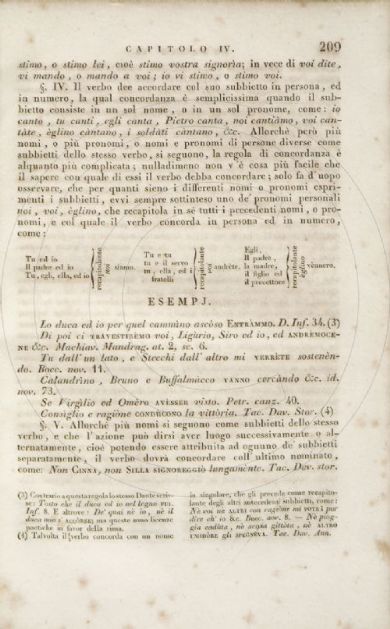 CAPITOLO IV. 209
stimo, o stimo lei, cioè stimo vostra signorìa; in vece di voi dite,
vi mando, o mando a voi; io vi stimo, o stimo voi.
§. IV. Il verbo dee accordare col suo subbietto in persona, ed
in numero, la qual concordanza è semplicissima quando il sub-
bietto consiste in un sol nome, o in un sol pronome, come: io
canto, tu canti, egli canta, Pietro canta, noi cantiàmo, voi can-
tàte, èglino càntano, i soldàti càntano, &c. Allorchè però più
nomi, o più pronomi, o nomi e pronomi di persone diverse come
subbietti dello stesso verbo, si seguono, la regola di concordanza è
alquanto più complicata; nulladimeno non v'è cosa più facile che
il sapere con quale di essi il verbo debba concordare; solo fa d'uopo
osservare, che per quanti sieno i differenti nomi o pronomi espri-
menti i subbietti, evvi sempre sottinteso uno de' pronomi personali
noi, voi, èglino, che recapitola in sè tutti i precedenti nomi, o pro-
nomi, e col quale il verbo concorda in persona ed in numero,
come:
Tu ed io
Il padre ed io
Tu, egli, ella, ed io
recapitolante
noi
siamo.
Tu e tu
tu o il servo
tu, ella, ed i
fratelli
recapitolante
voi
andrète.
Egli,
Il padre,
la madre,
il figlio ed
il precettore
recapitolante
èglino
vènnero.
ESEMPJ.
Lo duca ed io per quel cammìno ascòso ENTRÀMMO. D. Inf. 34. (3)
Di poi ci TRAVESTIRÈMO voi, Ligùrio, Siro ed io, ed ANDRÈMOCE-
NE &c. Machiav. Mandrag. at. 2. sc. 6.
Tu dall'un lato, e Stecchi dall'altro mi VERRÈTE sostenèn-
do. Bocc. nov. 11.
Calandrìno, Bruno e Buffalmàcco VANNO cercàndo &c. id.
nov. 73.
Se Virgìlio ed Omèro AVÈSSER visto. Petr. canz. 40.
Consìglio e ragiòne CONDÙCONO la vittòria. Tac. Dav. Stor. (4)
§. V. Allorchè più nomi si seguono come subbietti dello stesso
verbo, e che l'azione può dirsi aver luogo successivamente o al-
ternatamente, cioè potendo essere attribuita ad ognuno de' subbietti
separatamente, il verbo dovrà concordare coll'ultimo nominato,
come: Non CINNA, non SILLA SIGNOREGGIÒ lungamènte. Tac. Dav. stor.
(3) Contrario a questa regola lo stesso Dante scris-
se: Tosto che il duca ed io nel legno FUI.
Inf. 8. E altrove:
poetiche in favor della rima.
(4) Talvolta il verbo concorda con un nome
in singolare, che gli preceda come recapito-
lante degli altri antecedenti subbietti, come:
Bocc. nov. 8.
Tac. Dav. Ann.